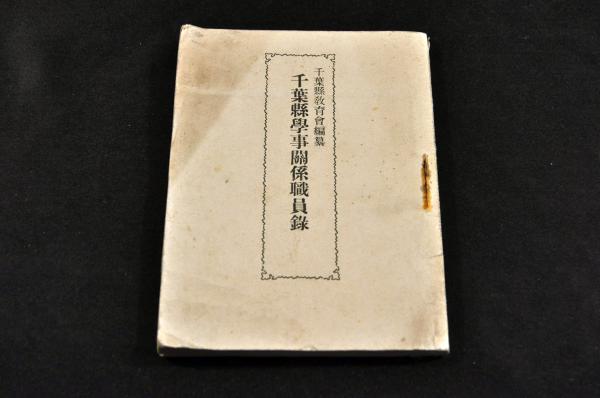 千葉縣敎育會編纂
千葉縣學事關係職員錄